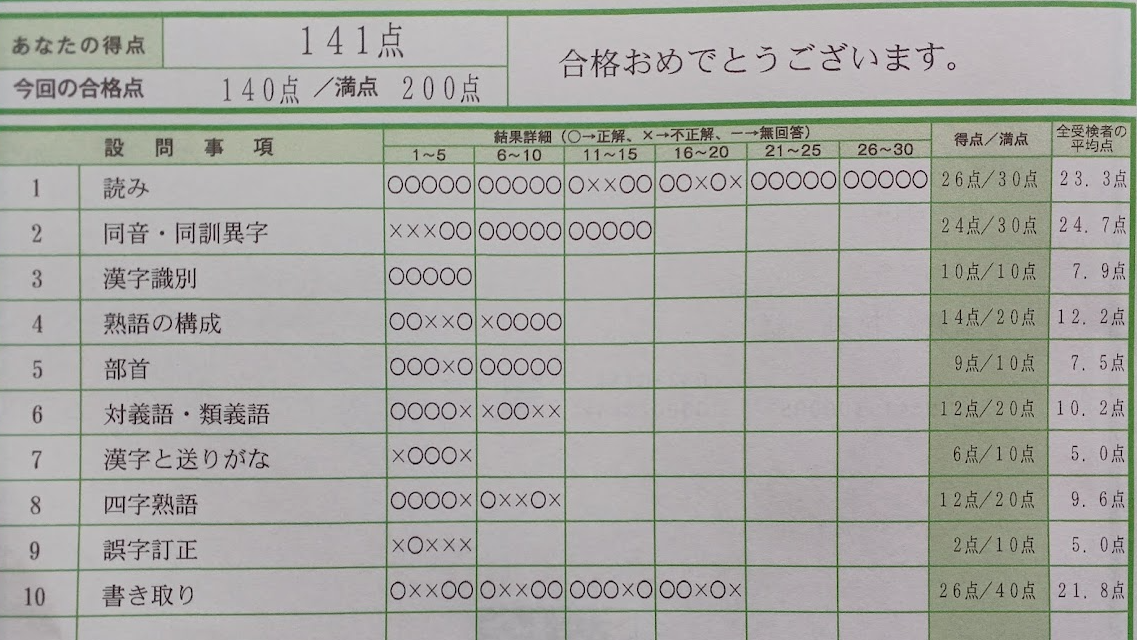 あなたの得点 141点 合格おめでとうございます。
今回の合格点 140点 ／満点 200点
設問事項 結果詳細（○→正解、×→不正解、ー→無回答） 得点／満点 全受検者の平均点
1～5 6～10 11～15 16～20 21～25 26～30
1 読み ○○○○○ ○○○○○ ○××○○ ○○×○× ○○○○○ ○○○○○ 26点／30点 23.3点
2 同音・同訓異字 ×××○○ ○○○○○ ○○○○○ 24点／30点 24.7点
3 漢字識別 ○○○○○ 10点／10点 7.9点
4 熟語の構成 ○○××○ ×○○○○ 14点／20点 12.2点
5 部首 ○○○×○ ○○○○○ 9点／10点 7.5点
6 対義語・類義語 ○○○○× ×○○×× 12点／20点 10.2点
7 漢字と送りがな ×○○○× 6点／10点 5.0点
8 四字熟語 ○○○○× ○××○× 12点／20点 9.6点
9 誤字訂正 ×○××× 2点／10点 5.0点
10 書き取り ○××○○ ○××○○ ○○○×○ ○○×○× 26点／40点 21.8点